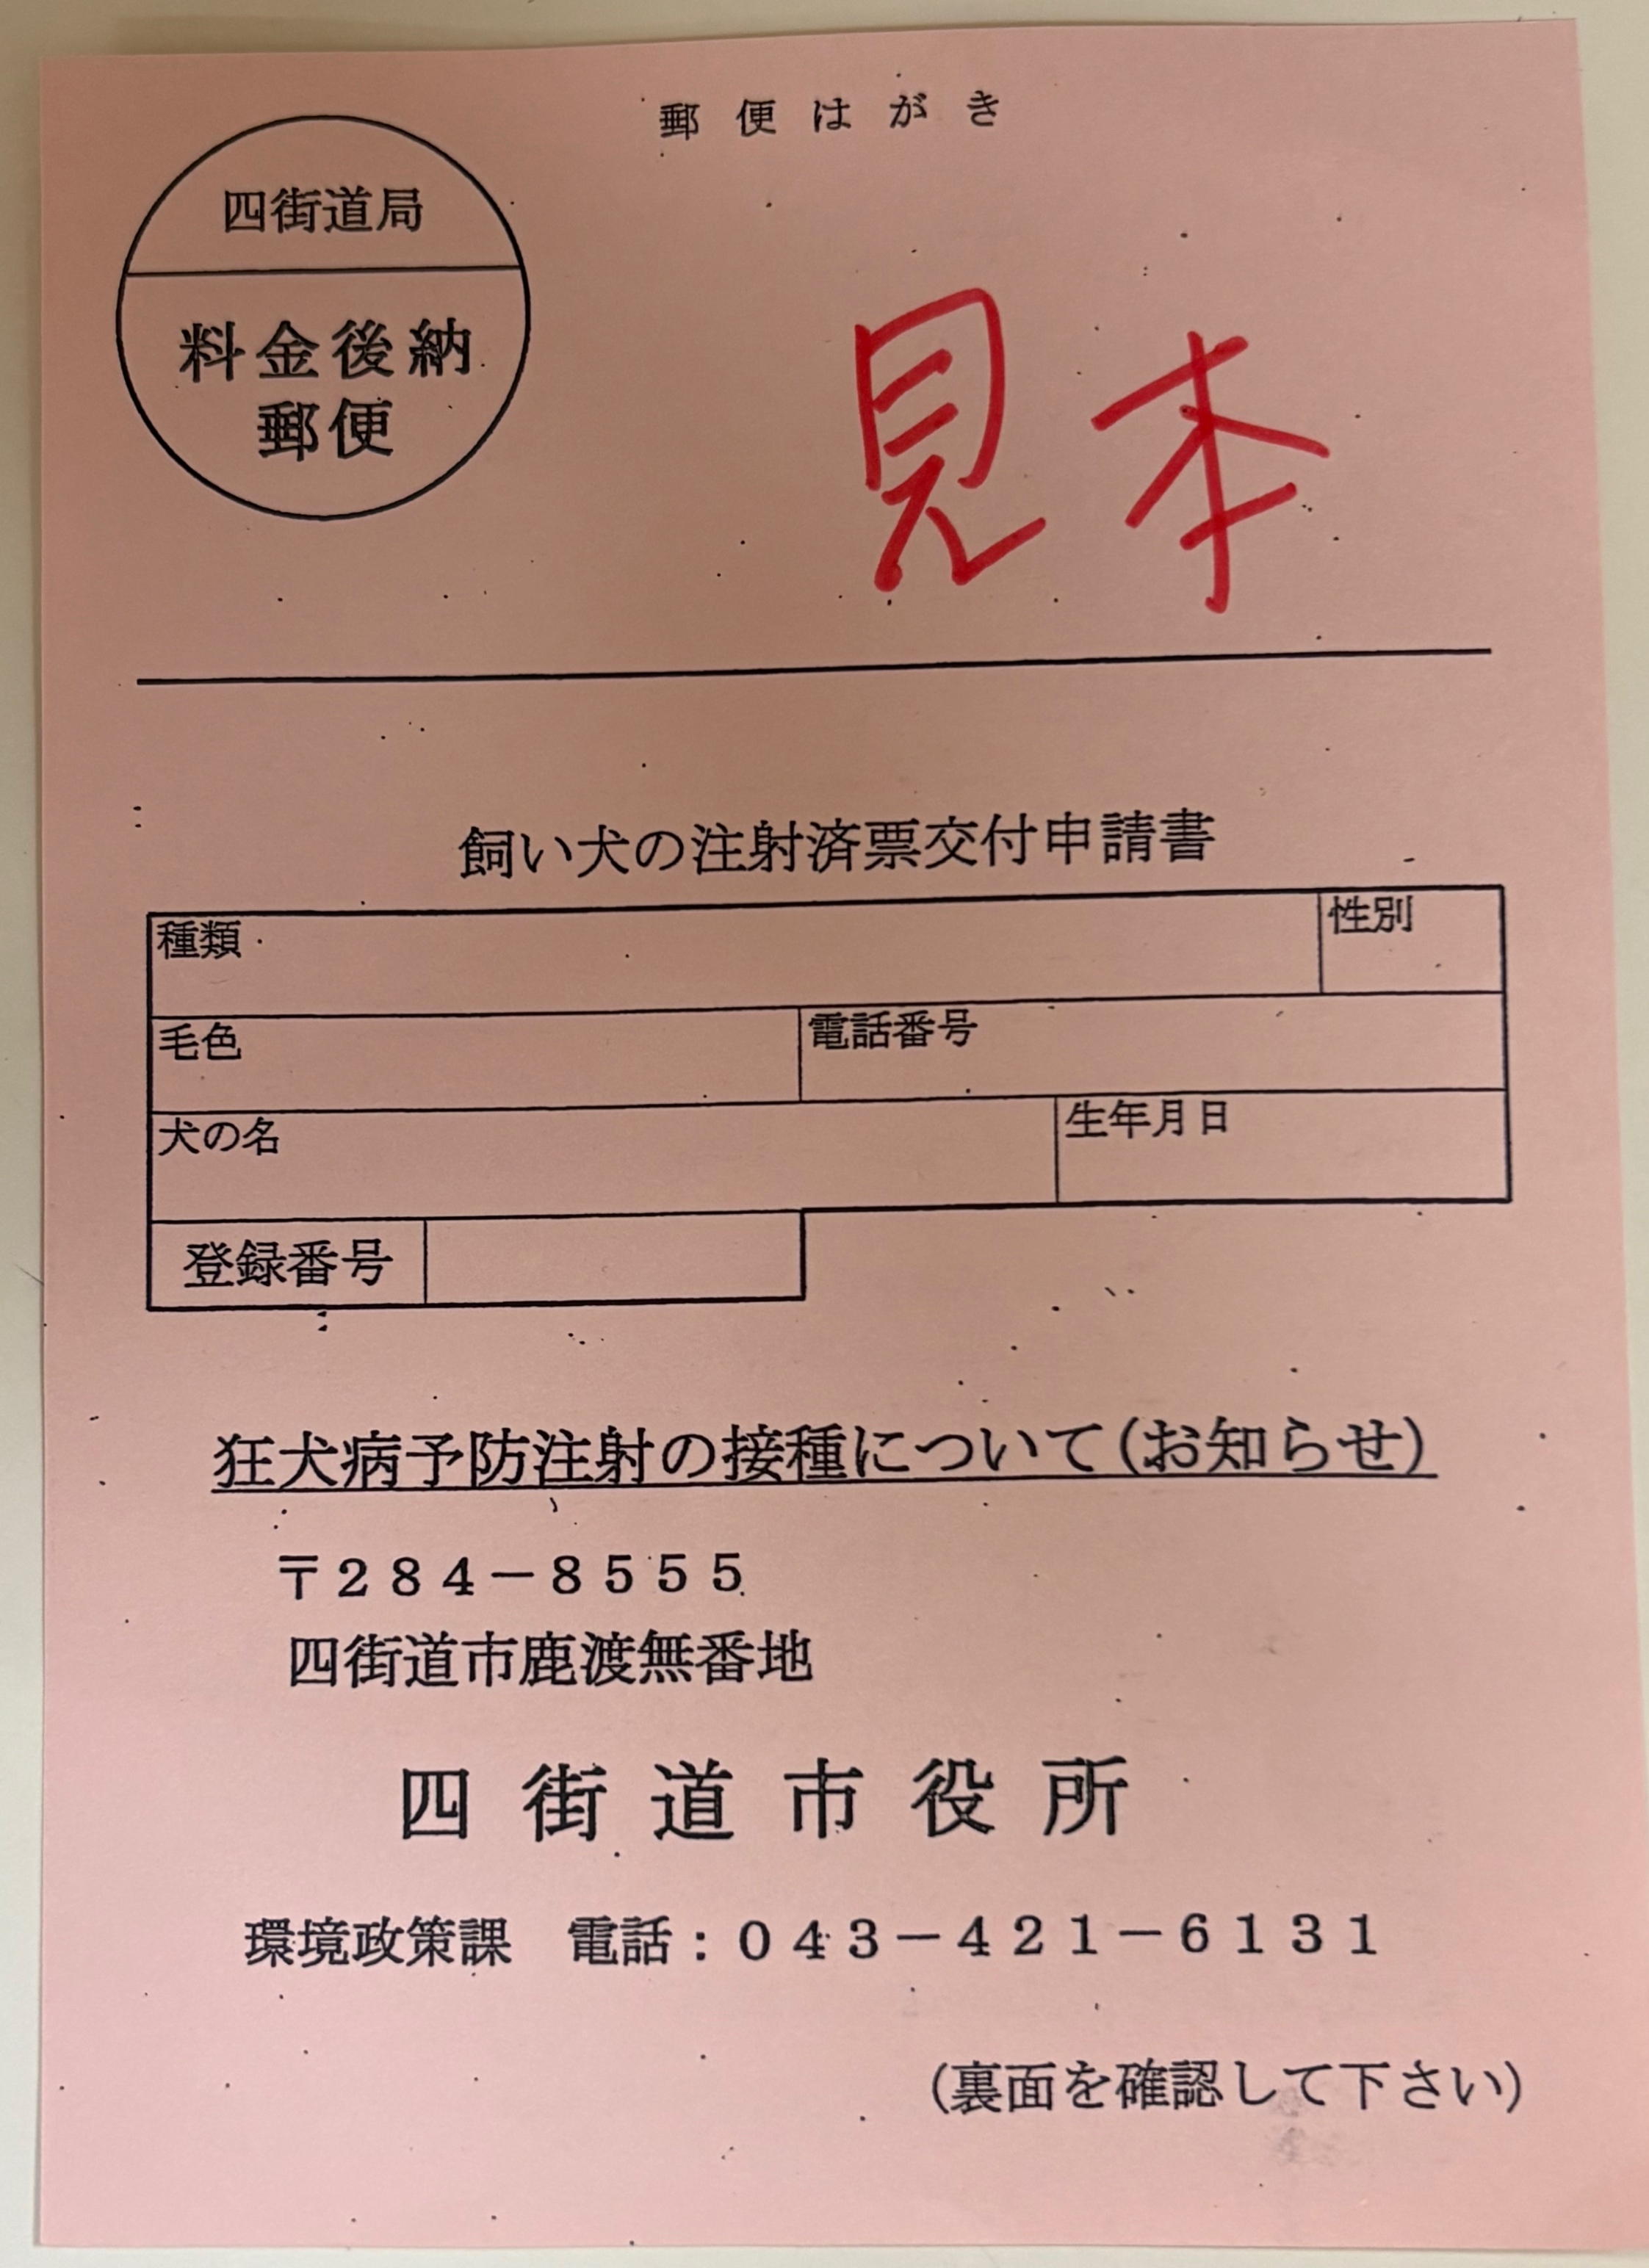 郵便はがき
四街道局
料金後納
郵便
見本
飼い犬の注射済票交付申請書
種類 性別
毛色 電話番号
犬の名 生年月日
登録番号
狂犬病予防注射の接種について(お知らせ)
〒284-8555
四街道市鹿渡無番地
四街道市役所
環境政策課 電話:043-421-6131
(裏面を確認して下さい)